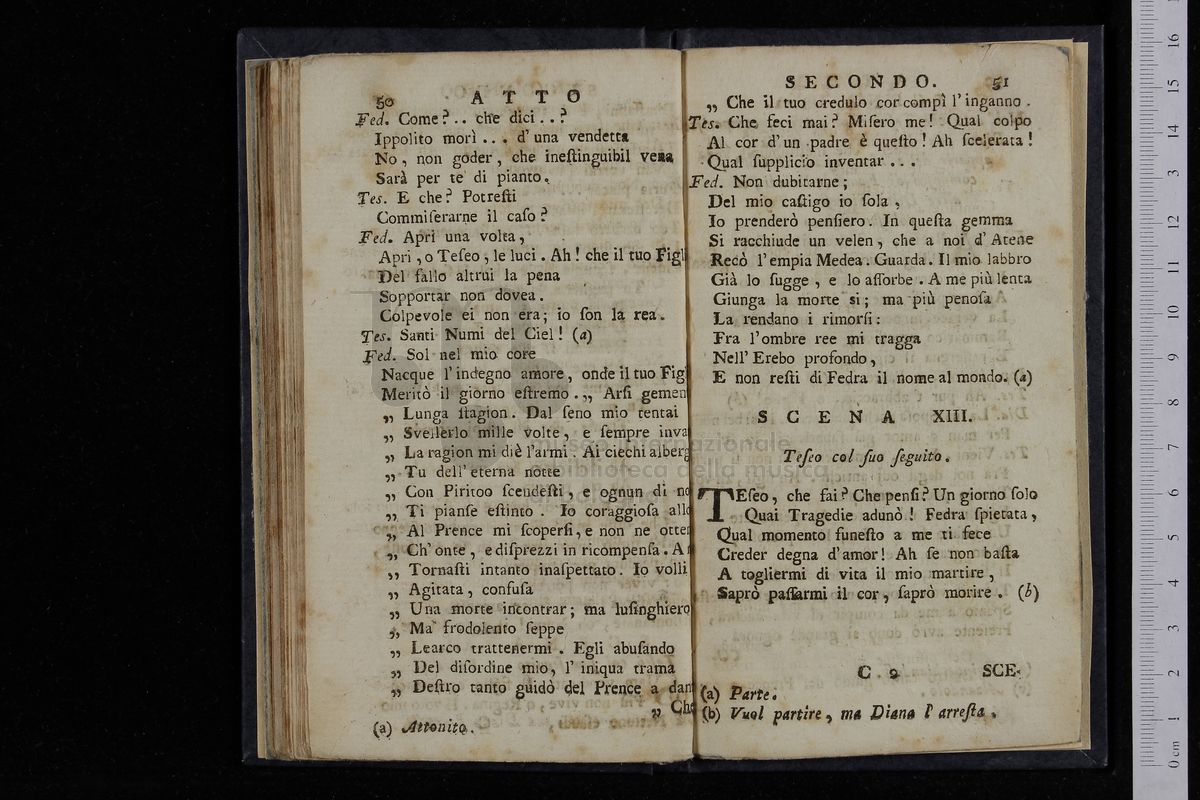 50 ATTO
Fed. Come?.. che dici..?
Ippolito morì... d'una vendetta
No, non goder, che ineſtinguibil vena
Sarà per te di pianto.
Tes. E che? Potreſti
Commiſerarne il caſo?
Fed. Apri una volta,
Apri, o Teſeo, le luci. Ah! che il tuo Figl
Del fallo altrui la pena
Sopportar non dovea.
Colpevole ei non era; io ſon la rea.
Tes. Santi Numi del Ciel! (a)
Fed. Sol nel mio core
Nacque l'indegno amore, onde il tuo Figl
Meritò il giorno eſtremo. „ Arſi gemen
„ Lunga ſtagion. Dal ſeno mio tentai
„ Svellerlo mille volte, e ſempre inva
„ La ragion mi diè l'armi. Ai ciechi alberg
„ Tu dell'eterna notte
„ Con Piritoo ſcendeſti, e ognun di no
„ Ti pianſe eſtinto. Io coraggioſa allo
„ Al Prence mi ſcoperſi, e non ne otten
„ Ch'onte, e diſprezzi in ricompenſa. A
„ Tornaſti intanto inaſpettato. Io volli
„ Agitata, confuſa
„ Una morte incontrar; ma luſinghiero
„ Ma frodolento ſeppe
„ Learco trattenermi. Egli abuſando
„ Del diſordine mio, l'iniqua trama
„ Deſtro tanto guidò del Prence a dan
„ Che
(a) Attonito.
SECONDO. 51
„ Che il tuo credulo cor compì l'inganno.
Tes. Che feci mai? Miſero me! Qual colpo
Al cor d'un padre è queſto! Ah ſcelerata!
Qual ſupplicio inventar...
Fed. Non dubitarne;
Del mio caſtigo io ſola,
Io prenderò penſiero. In queſta gemma
Si racchiude un velen, che a noi d'Atene
Recò l'empia Medea. Guarda. Il mio labbro
Già lo ſugge, e lo aſſorbe. A me più lenta
Giunga la morte si; ma più penoſa
La rendano i rimorſi:
Fra l'ombre ree mi tragga
Nell'Erebo profondo,
E non reſti di Fedra il nome al mondo. (a)
SCENA XIII.
Teſeo col ſuo ſeguito.
TEſeo, che fai? Che penſi? Un giorno ſolo
Quai Tragedie adunò! Fedra ſpietata,
Qual momento funeſto a me ti fece
Creder degna d'amor! Ah ſe non baſta
A togliermi di vita il mio martire,
Saprò paſſarmi il cor, ſaprò morire. (b)
C 2 SCE-
(a) Parte.
(b) Vuol partire, ma Diana l'arreſta.
museo internazionale
biblioteca della musica
0 cm 1 2 3 4 5 6 7 8 9 10 11 12 13 14 15 16